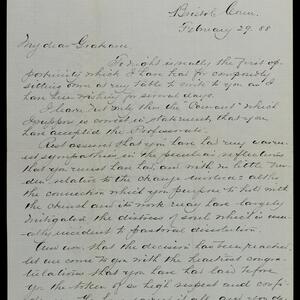 Bristol Conn.
February 29. 88
My dear Graham,
To-night is really the first op-
portunity which I have had for composedly
sitting down at my table to write to you as I
have been wishing for several days.
I have just seen the "Courant" which
I suppose is correct in statement, that you
have accepted the Professorate.
Rest assured that you have had my ear-
nest sympathies in the peculiar reflections
that you must have had
relative to the change involved: altho
the connection which you purpose to hold with
the church and its work may have largely
mitigated the distress of soul which is usu-
ally incident to pastoral dissolution.
that the decision has been reached,
let me come to you with the heartiest congra-
tulations that you have had laid before
you the token of so high respect and confi-